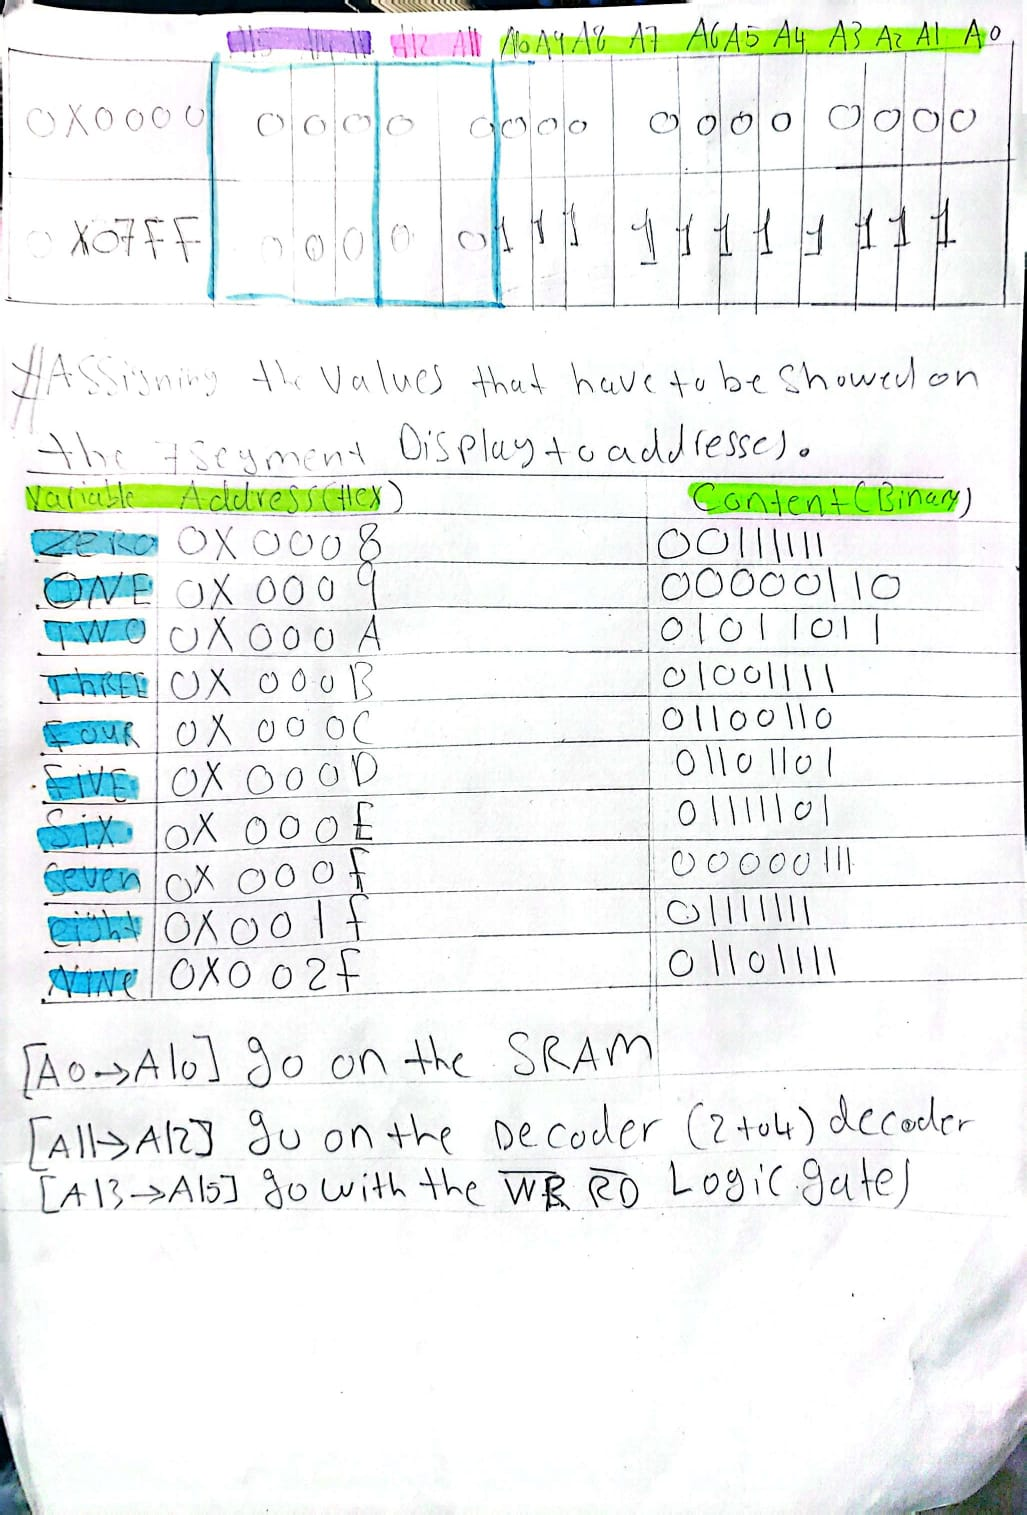 A15 A14 A13 A12 A11 A10 A9 A8 A7 A6 A5 A4 A3 A2 A1 A0
0X0000 0 0 0 0 0 0 0 0 0 0 0 0 0 0 0 0
0X07FF 0 0 0 0 0 1 1 1 1 1 1 1 1 1 1 1
#Assigning the Values that have to be Showed on
the 7Segment Display to addresses.
Variable Address(Hex) Content(Binary)
ZERO 0X0008 00111111
ONE 0X0009 00000110
TWO 0X000A 01011011
ThREE 0X000B 01001111
FOUR 0X000C 01100110
FiVE 0X000D 01101101
Six 0X000E 01111101
Seven 0X000f 00000111
eight 0X001f 01111111
NiNe 0X002f 01101111
[A0→A10] go on the SRAM
[A11→A12] go on the Decoder (2to4) decoder
[A13→A15] go with the W̅R̅ R̅D̅ Logic gates